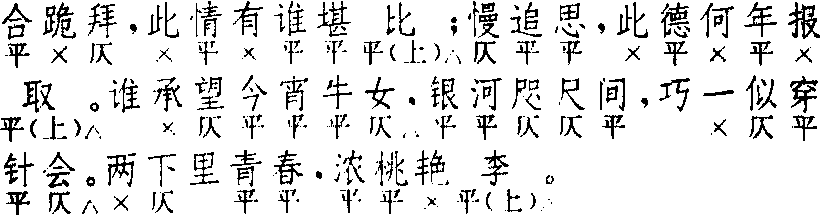 合跪拜，此情有谁堪 比 ；慢追思，此德何年报
平 × 仄 × 平 × 平 平 平(上)△ 仄 平 平 × 平 × 平 ×
取 。谁承望今宵牛女，银河咫尺间，巧一似穿
平(上)△ × 仄 平 平 平 仄 △ 平 平 仄 仄 平 × 仄 平
针会。两下里青春，浓桃艳 李 。
平 仄 △ × 仄 平 平 平 平 × 平(上)△